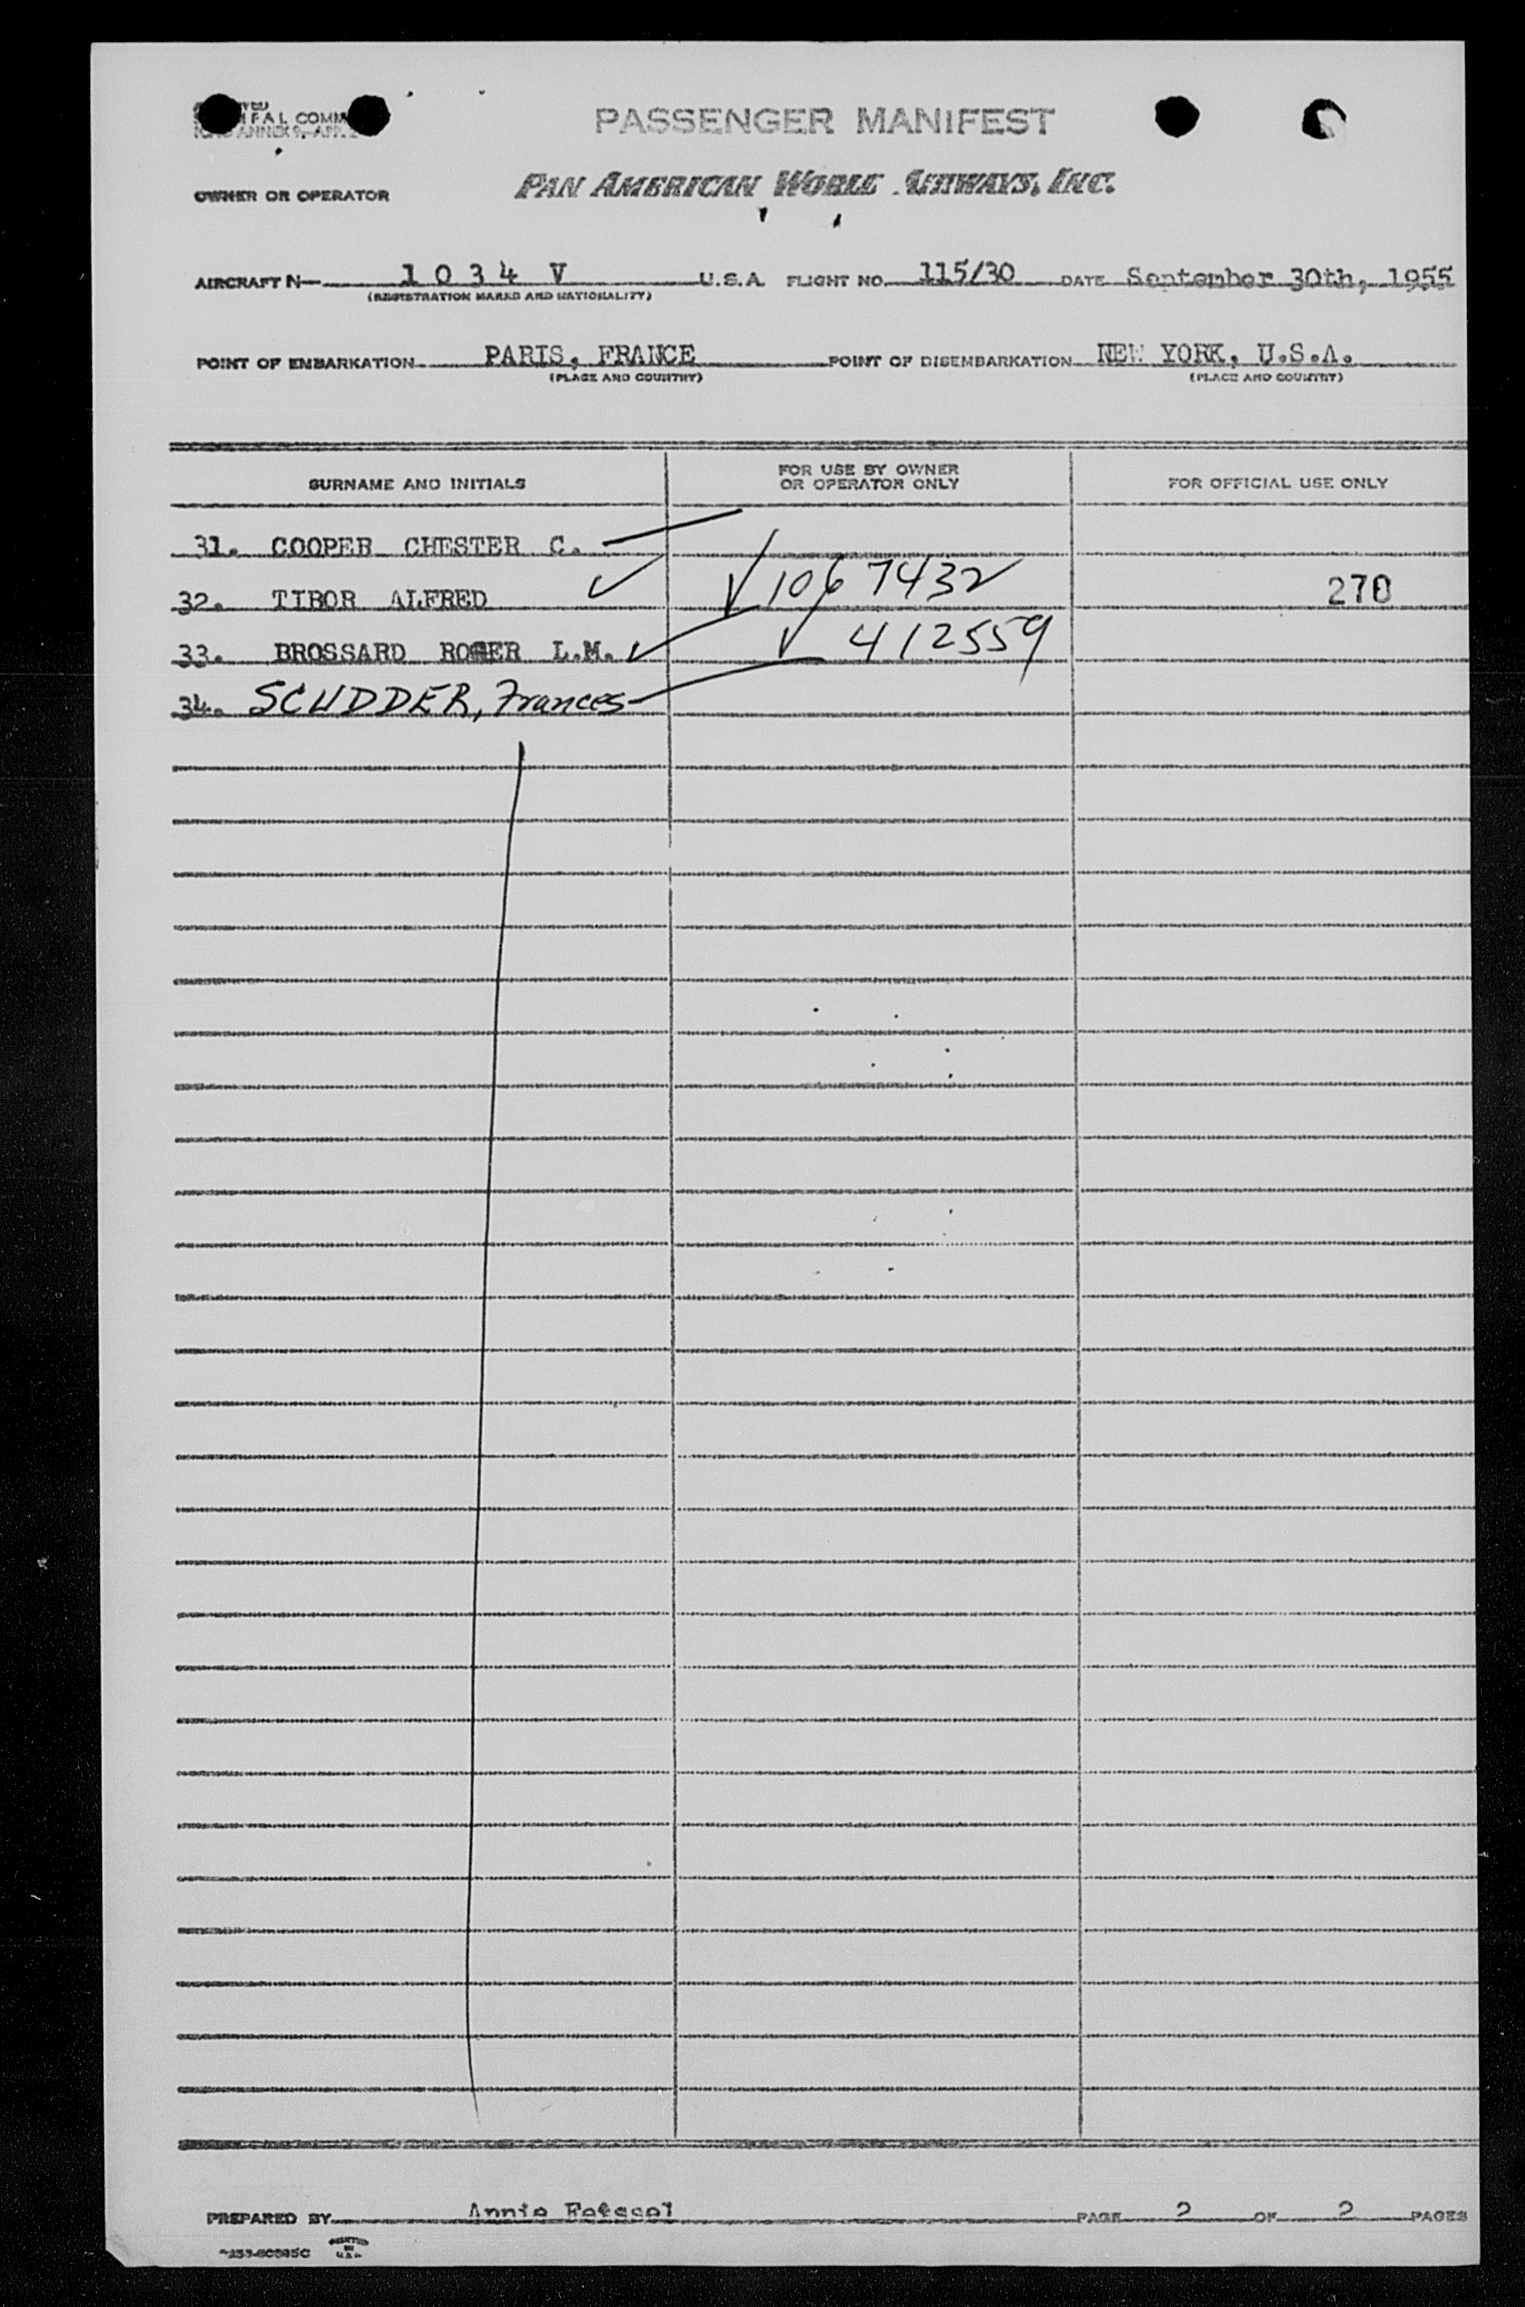 PASSENGER MANIFEST
OWNER OR OPERATOR PAN AMERICAN WORLD AIRWAYS, INC.
AIRCRAFT N— 1 0 3 4 V U.S.A. FLIGHT NO. 115/30 DATE September 30th, 1955
(REGISTRATION MARKS AND NATIONALITY)
POINT OF EMBARKATION PARIS, FRANCE POINT OF DISEMBARKATION NEW YORK, U.S.A.
(PLACE AND COUNTRY) (PLACE AND COUNTRY)
SURNAME AND INITIALS FOR USE BY OWNER OR OPERATOR ONLY FOR OFFICIAL USE ONLY
31. COOPER CHESTER C.
32. TIBOR ALFRED ✓ ✓ 1067432 270
33. BROSSARD ROGER L.M. ✓ ✓ 412559
34. SCUDDER, Frances
PREPARED BY Annie Feissel PAGE 2 OF 2 PAGES
PRINTED
IN
U.S.A.